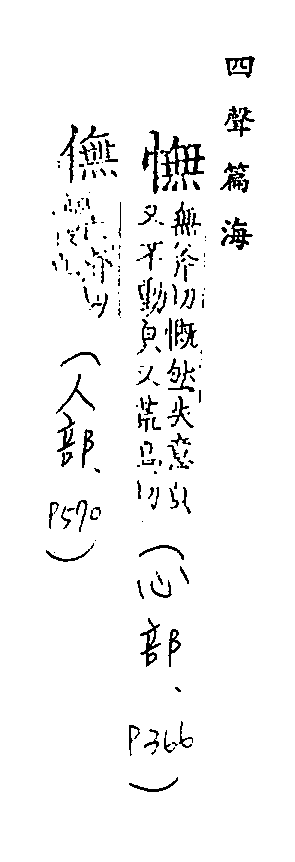 四聲篇海
憮
無斧切慨然失意皃
又不動皃又荒烏切
(心部、P366)
憮
(人部、P570)